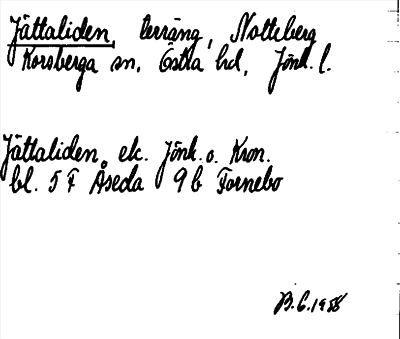 Jättaliden, terräng, Notteberg
Korsberga sn, Östra hd, Jönk. l.
Jättaliden, ek. Jönk. o. Kron.
bl. 5 F Åseda 9 b Fornebo
B.C. 1958